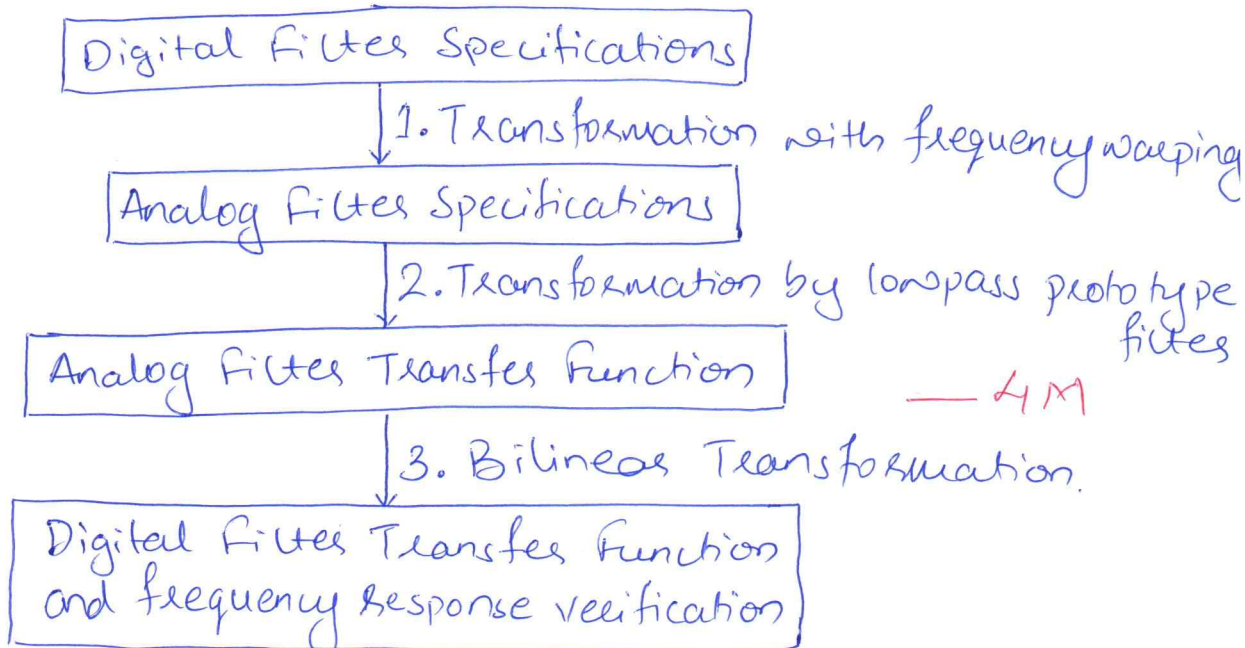 Digital Filter Specifications
1. Transformation with frequency warping
Analog Filter Specifications
2. Transformation by lowpass prototype
filter
Analog Filter Transfer Function
— 4M
3. Bilinear Transformation.
Digital Filter Transfer Function
and frequency response verification